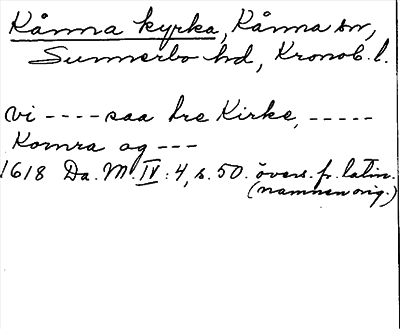 Kånna kyrka, Kånna sn,
Sunnerbo hd, Kronob. l.
vi ---- saa tre Kirke, -----
Komra og ---
1618 Da. M. IV: 4, s. 50. övers. fr. latin.
(namnen orig.)